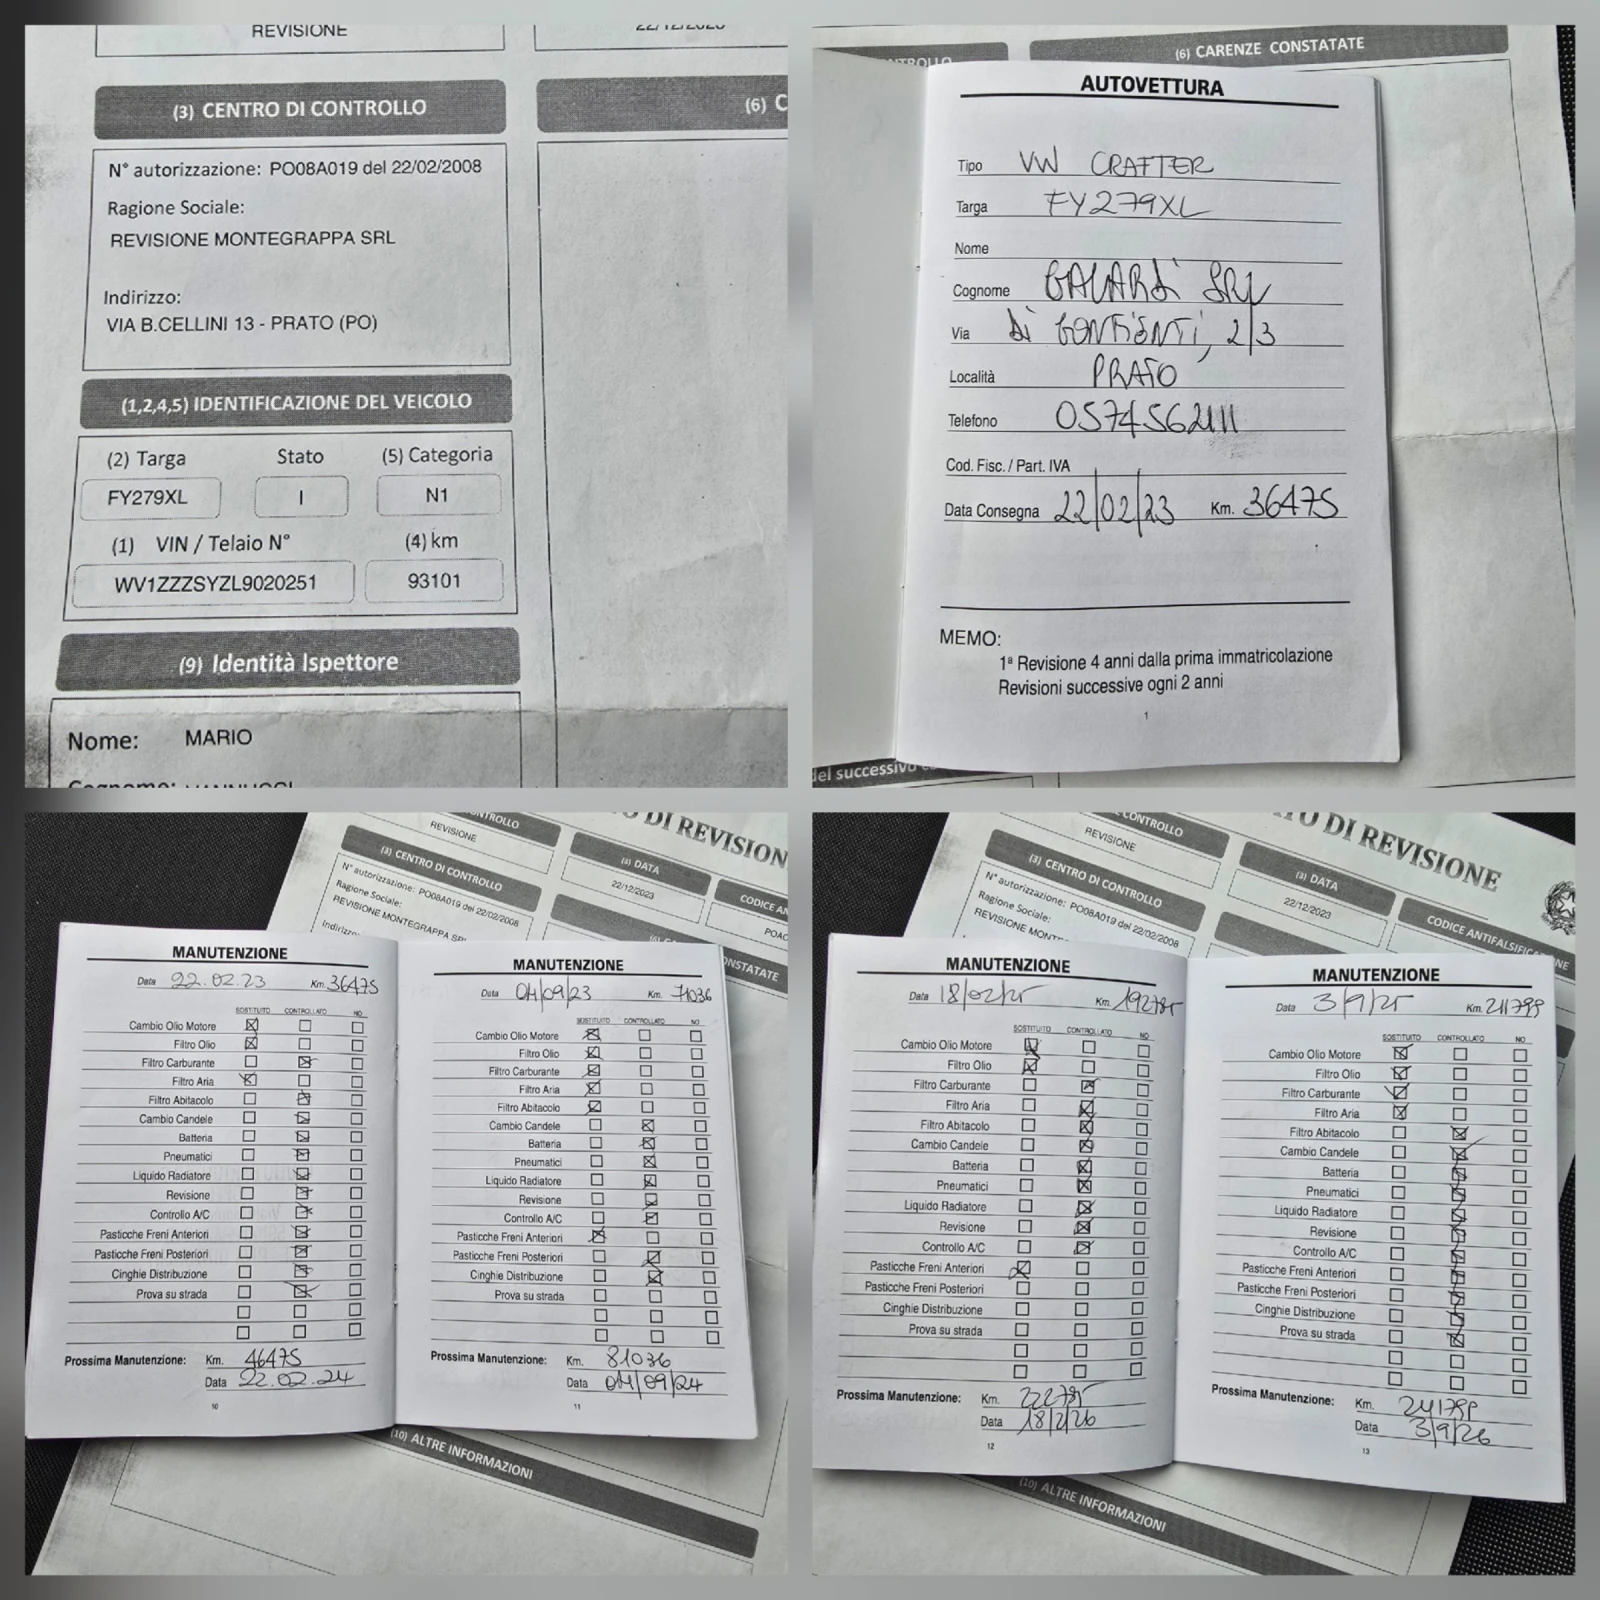 REVISIONE
22/12/2023
(3) CENTRO DI CONTROLLO
(6) C
N° autorizzazione: PO08A019 del 22/02/2008
Ragione Sociale:
REVISIONE MONTEGRAPPA SRL
Indirizzo:
VIA B.CELLINI 13 - PRATO (PO)
(1,2,4,5) IDENTIFICAZIONE DEL VEICOLO
(2) Targa Stato (5) Categoria
FY279XL I N1
(1) VIN / Telaio N° (4) km
WV1ZZZSYZL9020251 93101
(9) Identità Ispettore
Nome: MARIO
Cognome: VANNUCCI
(6) CARENZE CONSTATATE
AUTOVETTURA
Tipo VW CRAFTER
Targa FY279XL
Nome
Cognome SRL
Via Di 2/3
Località PRATO
Telefono 0574562111
Cod. Fisc. / Part. IVA
Data Consegna 22/02/23 Km. 36475
MEMO:
1ª Revisione 4 anni dalla prima immatricolazione
Revisioni successive ogni 2 anni
1
del successivo
CONTROLLO
REVISIONE
O DI REVISION
(3) CENTRO DI CONTROLLO
(3) DATA
22/12/2023
CODICE AN
N° autorizzazione: PO08A019 del 22/02/2008
Ragione Sociale:
REVISIONE MONTEGRAPPA SRL
Indirizzo:
POAC
CONSTATATE
MANUTENZIONE
Data 22.02.23 Km. 36475
SOSTITUITO CONTROLLATO NO
Cambio Olio Motore
Filtro Olio
Filtro Carburante
Filtro Aria
Filtro Abitacolo
Cambio Candele
Batteria
Pneumatici
Liquido Radiatore
Revisione
Controllo A/C
Pasticche Freni Anteriori
Pasticche Freni Posteriori
Cinghie Distribuzione
Prova su strada
Prossima Manutenzione: Km. 46475
Data 22.02.24
10
MANUTENZIONE
Data 04/09/23 Km. 71036
SOSTITUITO CONTROLLATO NO
Cambio Olio Motore
Filtro Olio
Filtro Carburante
Filtro Aria
Filtro Abitacolo
Cambio Candele
Batteria
Pneumatici
Liquido Radiatore
Revisione
Controllo A/C
Pasticche Freni Anteriori
Pasticche Freni Posteriori
Cinghie Distribuzione
Prova su strada
Prossima Manutenzione: Km. 81036
Data 04/09/24
11
(10) ALTRE INFORMAZIONI
CONTROLLO
REVISIONE
TO DI REVISIONE
(3) CENTRO DI CONTROLLO
(3) DATA
22/12/2023
CODICE ANTIFALSIFICAZIONE
N° autorizzazione: PO08A019 del 22/02/2008
Ragione Sociale:
REVISIONE MONT
MANUTENZIONE
Data 18/02/25 Km. 192785
SOSTITUITO CONTROLLATO NO
Cambio Olio Motore
Filtro Olio
Filtro Carburante
Filtro Aria
Filtro Abitacolo
Cambio Candele
Batteria
Pneumatici
Liquido Radiatore
Revisione
Controllo A/C
Pasticche Freni Anteriori
Pasticche Freni Posteriori
Cinghie Distribuzione
Prova su strada
Prossima Manutenzione: Km. 222785
Data 18/2/26
12
MANUTENZIONE
Data 3/9/25 Km. 211799
SOSTITUITO CONTROLLATO NO
Cambio Olio Motore
Filtro Olio
Filtro Carburante
Filtro Aria
Filtro Abitacolo
Cambio Candele
Batteria
Pneumatici
Liquido Radiatore
Revisione
Controllo A/C
Pasticche Freni Anteriori
Pasticche Freni Posteriori
Cinghie Distribuzione
Prova su strada
Prossima Manutenzione: Km. 241799
Data 3/9/26
13
(10) ALTRE INFORMAZIONI